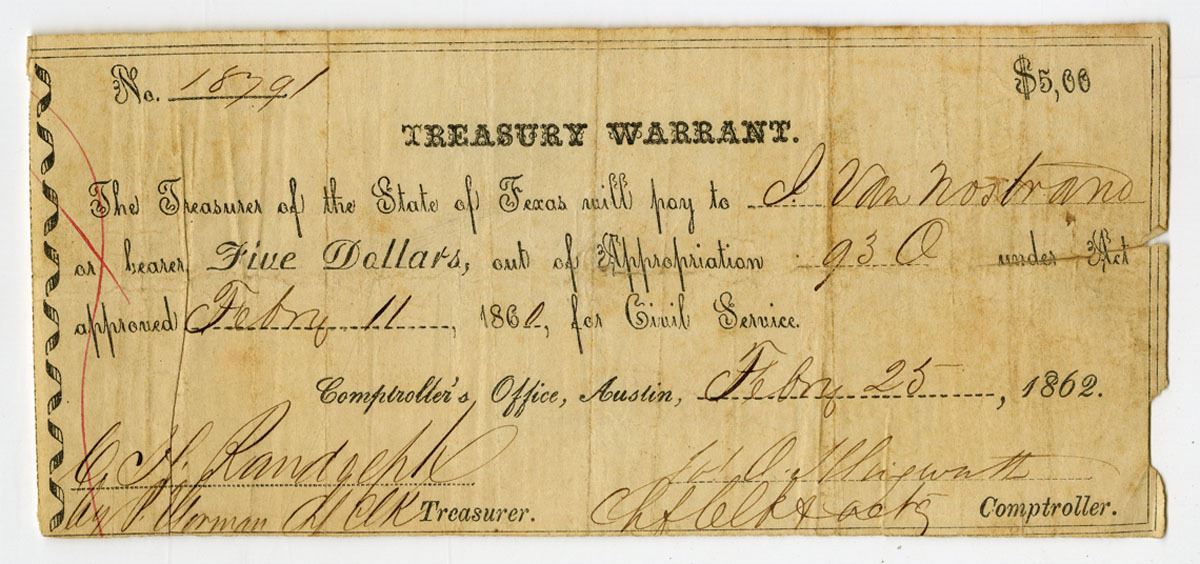 No. 18791 $5,00
TREASURY WARRANT.
The Treasurer of the State of Texas will pay to J. Van Nostrand
or bearer, Five Dollars, out of Appropriation 93 O under Act
approved Febry 11, 1860, for Civil Service.
Comptroller's Office, Austin, Febry 25, 1862.
C H Randolph
Ch Clk Treasurer. Chf Clk & actg Comptroller.